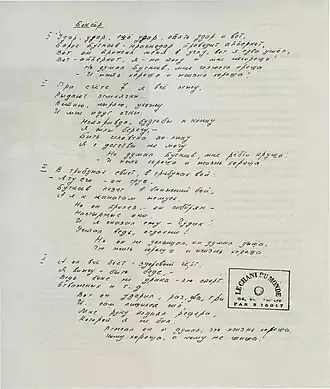 Боксёр
I Удар, удар, ещё удар, опять удар и вот,
Борис Буткеев - Краснодар проводит апперкот,
Вот он прижал меня в углу, вот я едва ушёл,
Вот - апперкот, я - на полу и мне нехорошо!
И думал Буткеев, мне челюсть кроша
- И жить хорошо и жизнь хороша!
II При счёте 7 я всё лежу,
Рыдают землячки
Встаю, ныряю, ухожу
И мне идут очки
Неправда, будто бы к концу
Я силы берегу, -
Бить человека по лицу
Я с детства не могу
Но думал Буткеев, мне рёбра круша:
- И жить хорошо и жизнь хороша
III В трибунах свист, в трибунах вой:
- Ату его - он трус,
Буткеев лезет в ближний бой,
А я к канатам жмусь
Но он пролез - он сибиряк -
Настырные они
И я сказал ему - Чудак!
Устал ведь, отдохни!
Но он не услышал, он думал, дыша,
Что жить хорошо и жизнь хороша
А он всё бьёт - здоровый чёрт,
Я вижу - быть беде, -
Ведь бокс не драка - это спорт
Отважных и т. д
Вот он ударил, раз, два, три
И сам лишился сил
Мне руку поднял рефери,
Которой я не бил
Лежал он и думал, что жизнь хороша
Кому хороша, а кому ни шиша!
LE CHANT DU MONDE
PAR B 28017